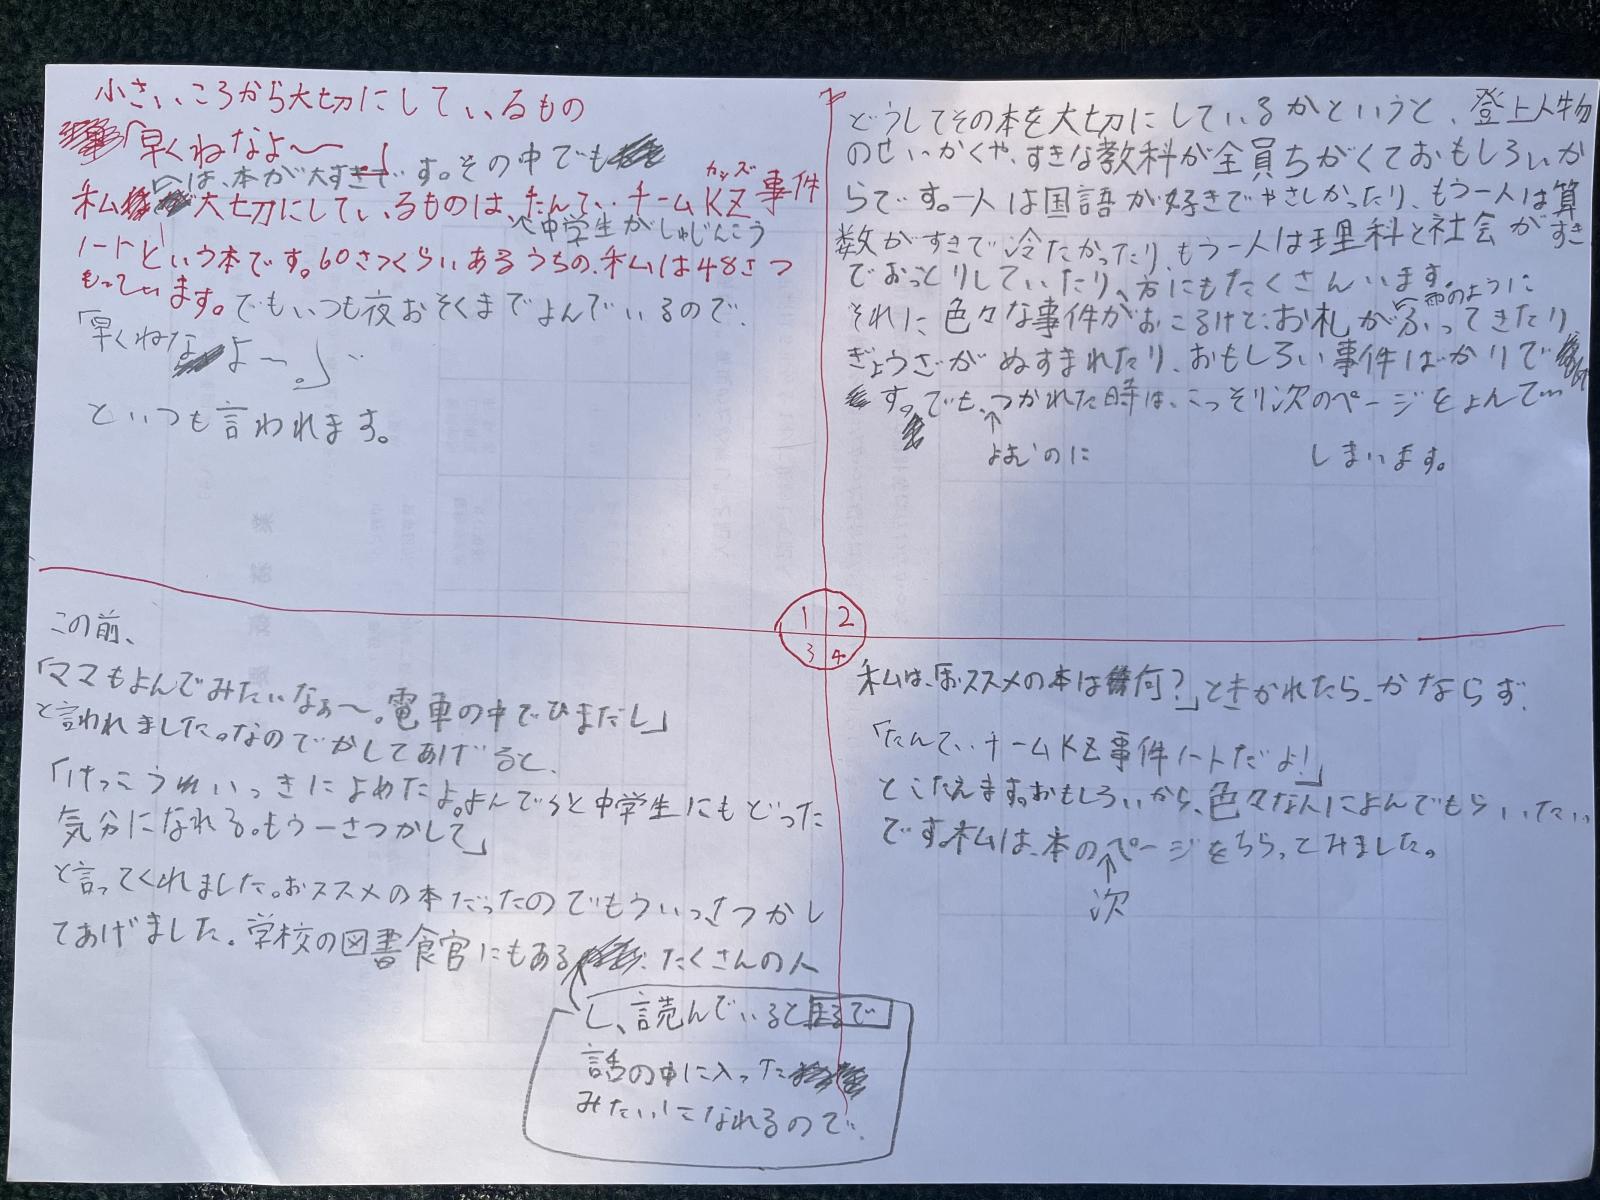 小さいころから大切にしているもの
「早くねなよ〜」
は、本が大すきです。その中でも
私 大切にしているものは、たんてぃチームKZ事件
カッズ
中学生がしゅじんこう
ノートという本です。60さつくらいあるうちの、私は48さつ
もっています。でもいつも夜おそくまでよんでいるので、
「早くねなよ〜。」
といつも言われます。
どうしてその本を大切にしているかというと、登上人物
のせいかくや、すきな教科が全員ちがくておもしろいか
らです。一人は国語が好きでやさしかったり、もう一人は算
数がすきで冷たかったり、もう一人は理科と社会がすき
でおっとりしていたり、方にもたくさんいます。
雨のように
それに色々な事件がおこるけど、お札がふってきたり
ぎょうざがぬすまれたり、おもしろい事件ばかりで
す。でも、つかれた時は、こっそり次のページをよんで…
よむのに
しまいます。
1 2
3 4
この前、
「ママもよんでみたいなぁ〜。電車の中でひまだし」
と言われました。なのでかしてあげると、
「けっこうれいっきによめたよ。よんでると中学生にもどった
気分になれる。もう一さつかして」
と言ってくれました。おススメの本だったのでもういっさつかし
てあげました。学校の図書館にもある たくさんの人
し、読んでいるとまるで
話の中に入った
みたいになれるので、
私は、「おススメの本は何?」ときかれたら、かならず、
「たんてぃチームKZ事件ノートだよ!」
とこたえます。おもしろいから、色々な人によんでもらいたい
です。私は、本のページをちらってみました。
次